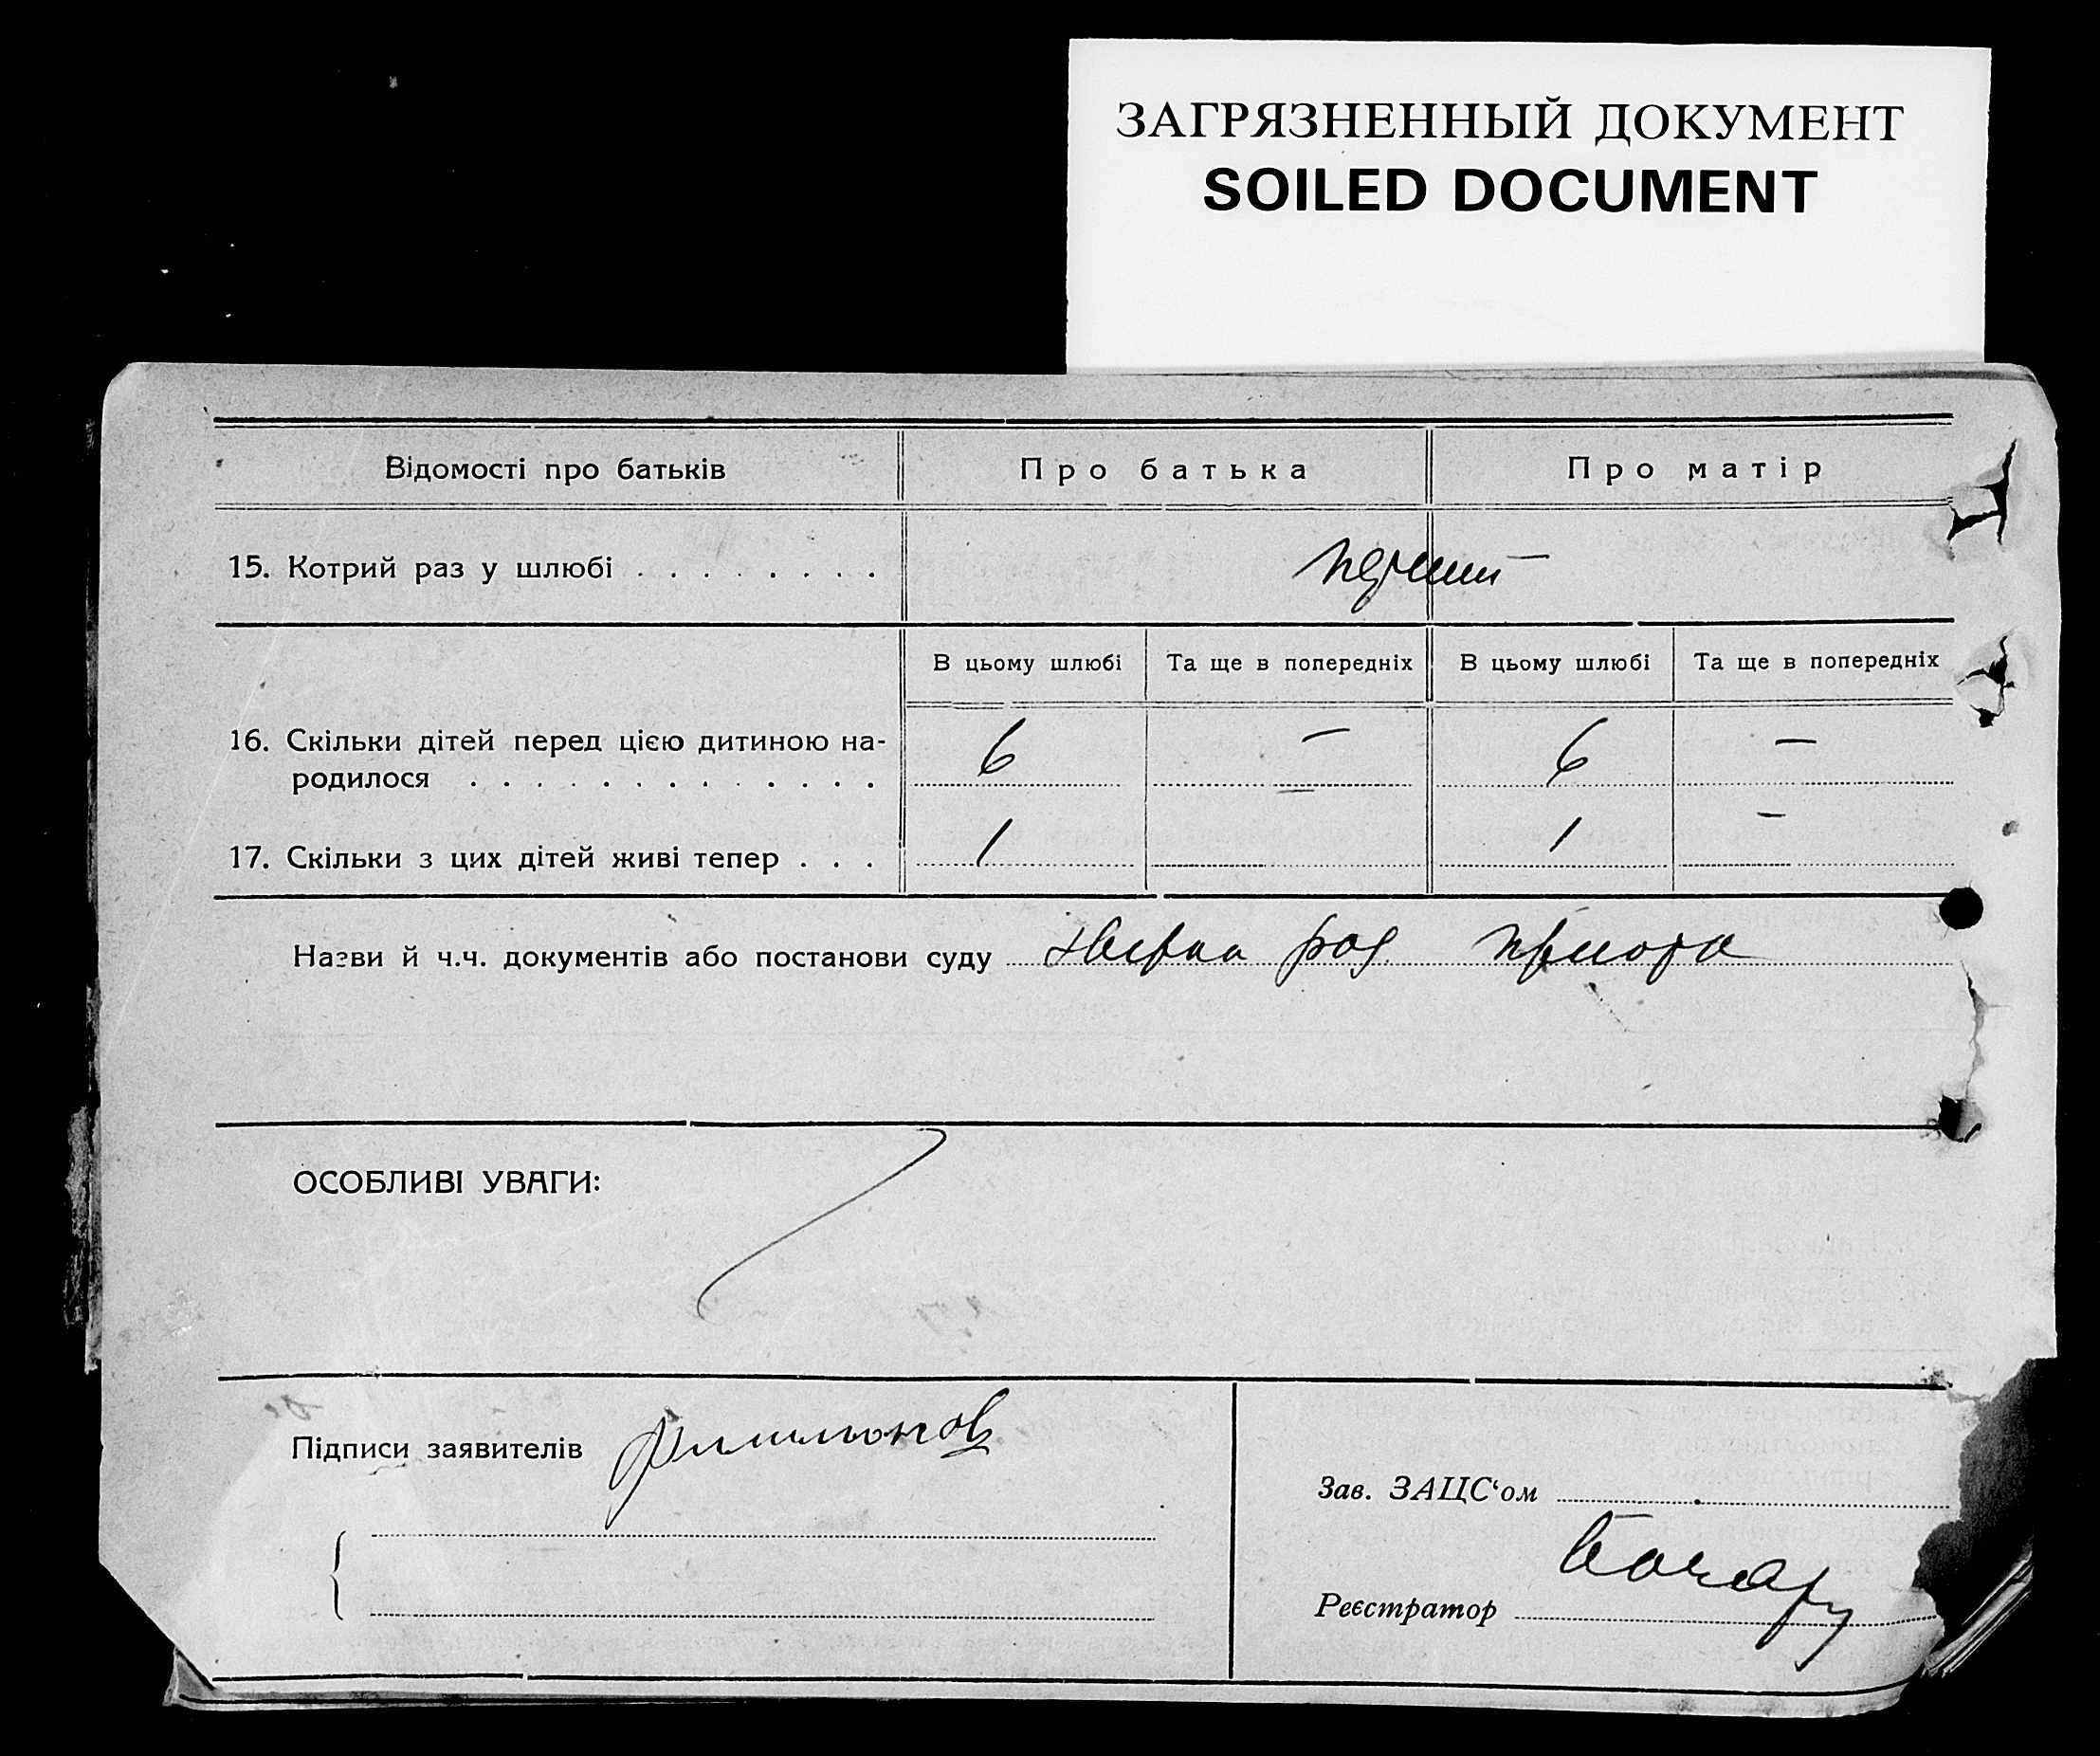 ЗАГРЯЗНЕННЫЙ ДОКУМЕНТ
SOILED DOCUMENT
Відомості про батьків Про батька Про матір
15. Котрий раз у шлюбі . . . . . . . . перший
В цьому шлюбі Та ще в попередніх В цьому шлюбі Та ще в попередніх
16. Скільки дітей перед цією дитиною на-
родилося . . . . . . . . . . . . . 6 — 6 —
17. Скільки з цих дітей живі тепер . . . 1 1 —
Назви й ч.ч. документів або постанови суду
ОСОБЛИВІ УВАГИ:
Підписи заявителів
Зав. ЗАЦС‘ом
Реєстратор